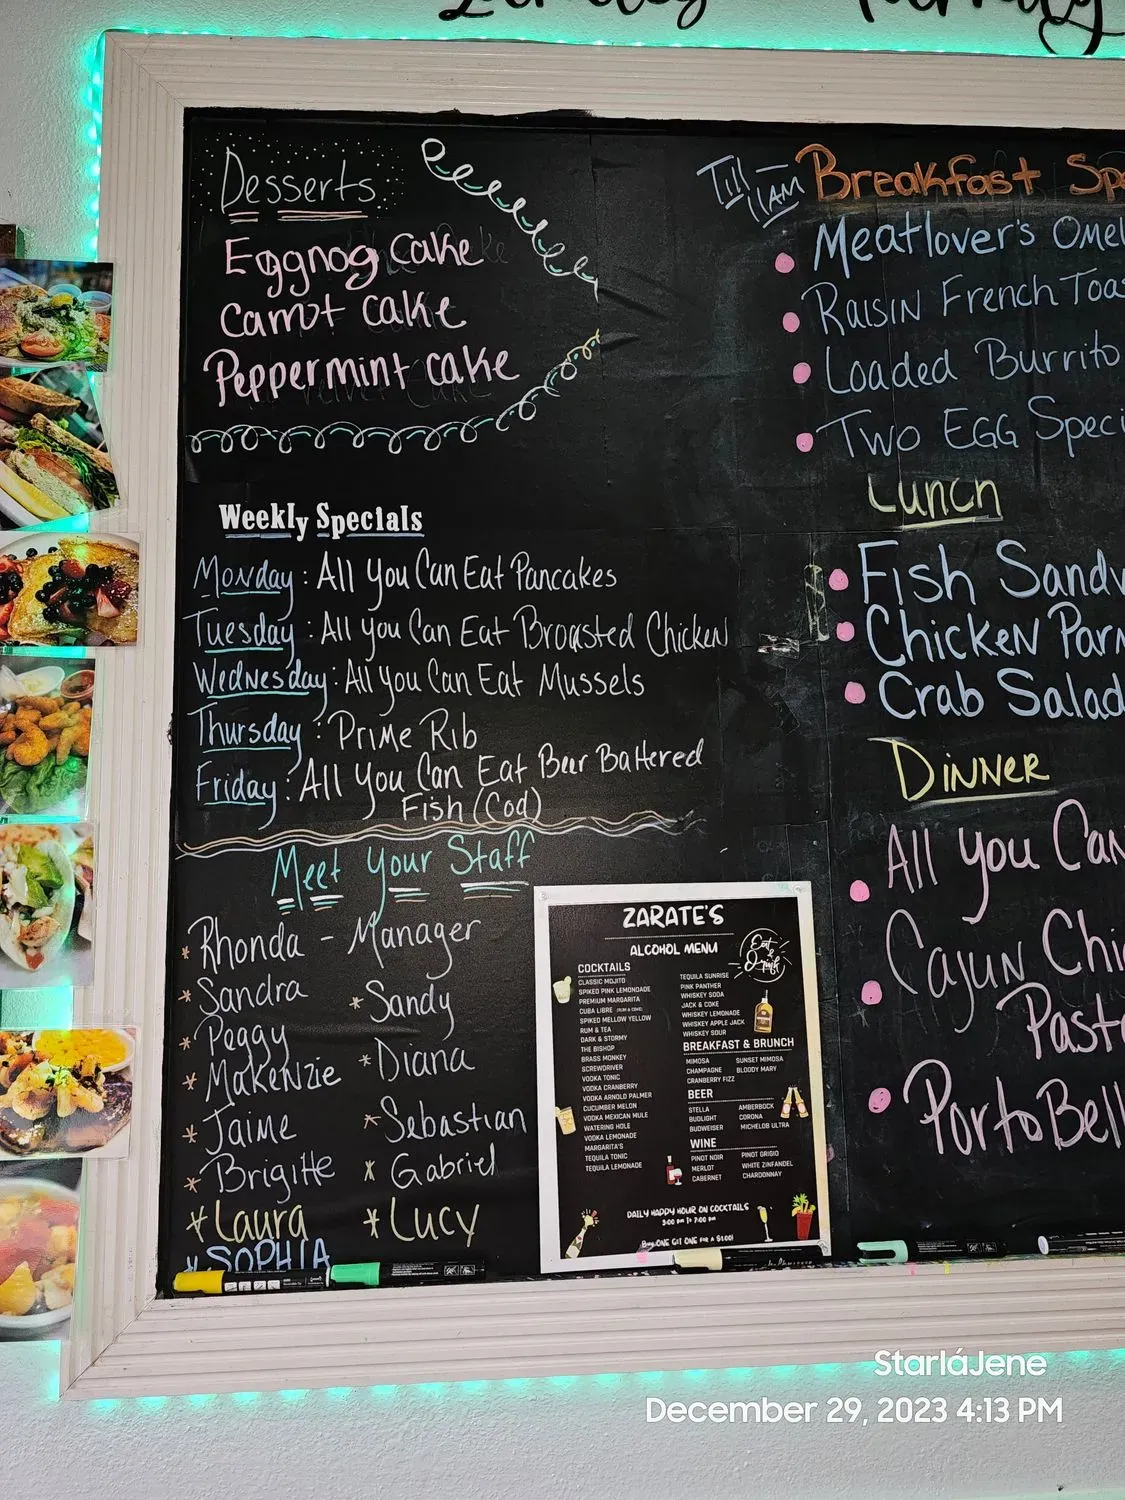 Desserts
Eggnog Cake
Carrot Cake
Peppermint Cake
Weekly Specials
Monday: All You Can Eat Pancakes
Tuesday: All You Can Eat Broasted Chicken
Wednesday: All You Can Eat Mussels
Thursday: Prime Rib
Friday: All You Can Eat Beer Battered
Fish (Cod)
Meet Your Staff
* Rhonda - Manager
* Sandra * Sandy
* Peggy
* Makenzie * Diana
* Jaime * Sebastian
* Brigitte * Gabriel
* Laura * Lucy
* SOPHIA
ZARATE'S
ALCOHOL MENU
Eat & Drink
COCKTAILS
CLASSIC MOJITO
SPIKED PINK LEMONADE
PREMIUM MARGARITA
CUBA LIBRE (RUM & COKE)
SPIKED MELLOW YELLOW
RUM & TEA
DARK & STORMY
THE BISHOP
BRASS MONKEY
SCREWDRIVER
VODKA TONIC
VODKA CRANBERRY
VODKA ARNOLD PALMER
CUCUMBER MELON
VODKA MEXICAN MULE
WATERING HOLE
VODKA LEMONADE
MARGARITA'S
TEQUILA TONIC
TEQUILA LEMONADE
TEQUILA SUNRISE
PINK PANTHER
WHISKEY SODA
JACK & COKE
WHISKEY LEMONADE
WHISKEY APPLE JACK
WHISKEY SOUR
BREAKFAST & BRUNCH
MIMOSA SUNSET MIMOSA
CHAMPAGNE BLOODY MARY
CRANBERRY FIZZ
BEER
STELLA AMBERBOCK
BUDLIGHT CORONA
BUDWEISER MICHELOB ULTRA
WINE
PINOT NOIR PINOT GRIGIO
MERLOT WHITE ZINFANDEL
CABERNET CHARDONNAY
DAILY HAPPY HOUR ON COCKTAILS
3:00 PM to 7:00 PM
Buy ONE GET ONE FOR A $1.00!
Till 11AM
Breakfast Spe
Meatlover's Omel
Raisin French Toas
Loaded Burrito
Two EGG Speci
Lunch
Fish Sandw
Chicken Parm
Crab Salad
Dinner
All You Can
Cajun Chi
Pasta
PortoBell
StarláJene
December 29, 2023 4:13 PM